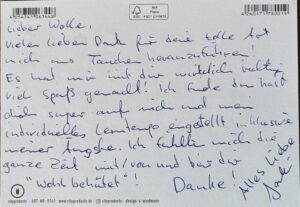 4 034741 065668
MIX
Papier
FSC
FSC® C124385
4 260171 780019
Lieber Wolle!
Vielen lieben Dank für deine tolle Art
mich ans Tauchen heranzuführen!
Es hat mir mit dir wirklich richtig
viel Spaß gemacht! Ich finde du hast
dich super auf mich und mein
individuelles Lerntempo eingestellt inklusive
meiner Ängste. Ich fühlte mich die
ganze Zeit mit/von und bei dir
"Wohl behütet"!
Danke!
Alles Liebe
cityproducts ART NR. 6147 www.cityproducts.de
cityproducts design + windmann